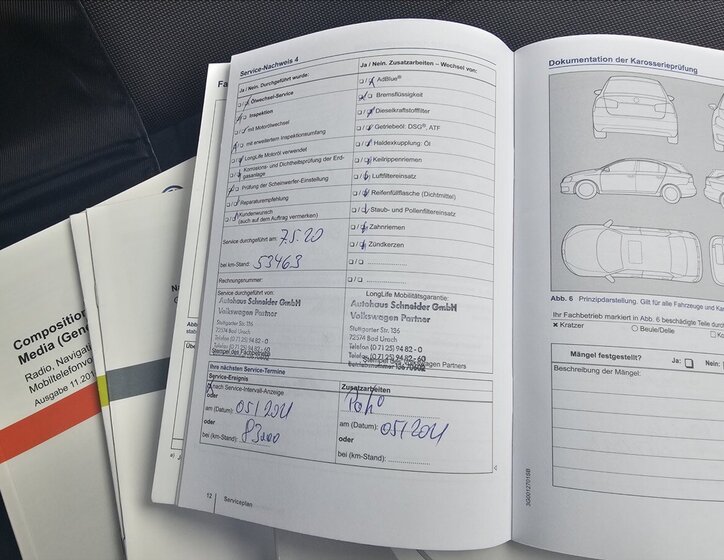 Service-Nachweis 4
Ja / Nein. Durchgeführt wurde:
Ölwechsel-Service
Inspektion
mit Motorölwechsel
mit erweitertem Inspektionsumfang
LongLife Motoröl verwendet
Korrosions- und Dichtheitsprüfung der Erd-
gasanlage
Prüfung der Scheinwerfer-Einstellung
Reparaturempfehlung
Kundenwunsch
(auch auf dem Auftrag vermerken)
Service durchgeführt am: 7.5.20
bei km-Stand: 53463
Rechnungsnummer:
Service durchgeführt von:
Autohaus Schneider GmbH
Volkswagen Partner
Stuttgarter Str. 136
72574 Bad Urach
Telefon (0 71 25) 94 82 - 0
Telefax (0 71 25) 94 82 - 60
Stempel des Fachbetriebs
Ja / Nein. Zusatzarbeiten – Wechsel von:
AdBlue®
Bremsflüssigkeit
Dieselkraftstofffilter
Getriebeöl: DSG®, ATF
Haldexkupplung: Öl
Keilrippenriemen
Luftfiltereinsatz
Reifenfüllflasche (Dichtmittel)
Staub- und Pollenfiltereinsatz
Zahnriemen
Zündkerzen
LongLife Mobilitätsgarantie:
Autohaus Schneider GmbH
Volkswagen Partner
Stuttgarter Str. 136
72574 Bad Urach
Telefon (0 71 25) 94 82 - 0
Telefax (0 71 25) 94 82 - 60
Ihre nächsten Service-Termine
Service-Ereignis
nach Service-Intervall-Anzeige
oder
am (Datum): 05/2021
oder
bei (km-Stand): 83000
Zusatzarbeiten
am (Datum): 05/2021
oder
bei (km-Stand):
12 Serviceplan
Dokumentation der Karosserieprüfung
Abb. 6 Prinzipdarstellung. Gilt für alle Fahrzeuge und
Ihr Fachbetrieb markiert in Abb. 6 beschädigte Teile
× Kratzer
○ Beule/Delle
Mängel festgestellt? Ja: Nein:
Beschreibung der Mängel:
Composition
Media (Gene
Radio, Navigati
Mobiltelefonvo
Ausgabe 11.201